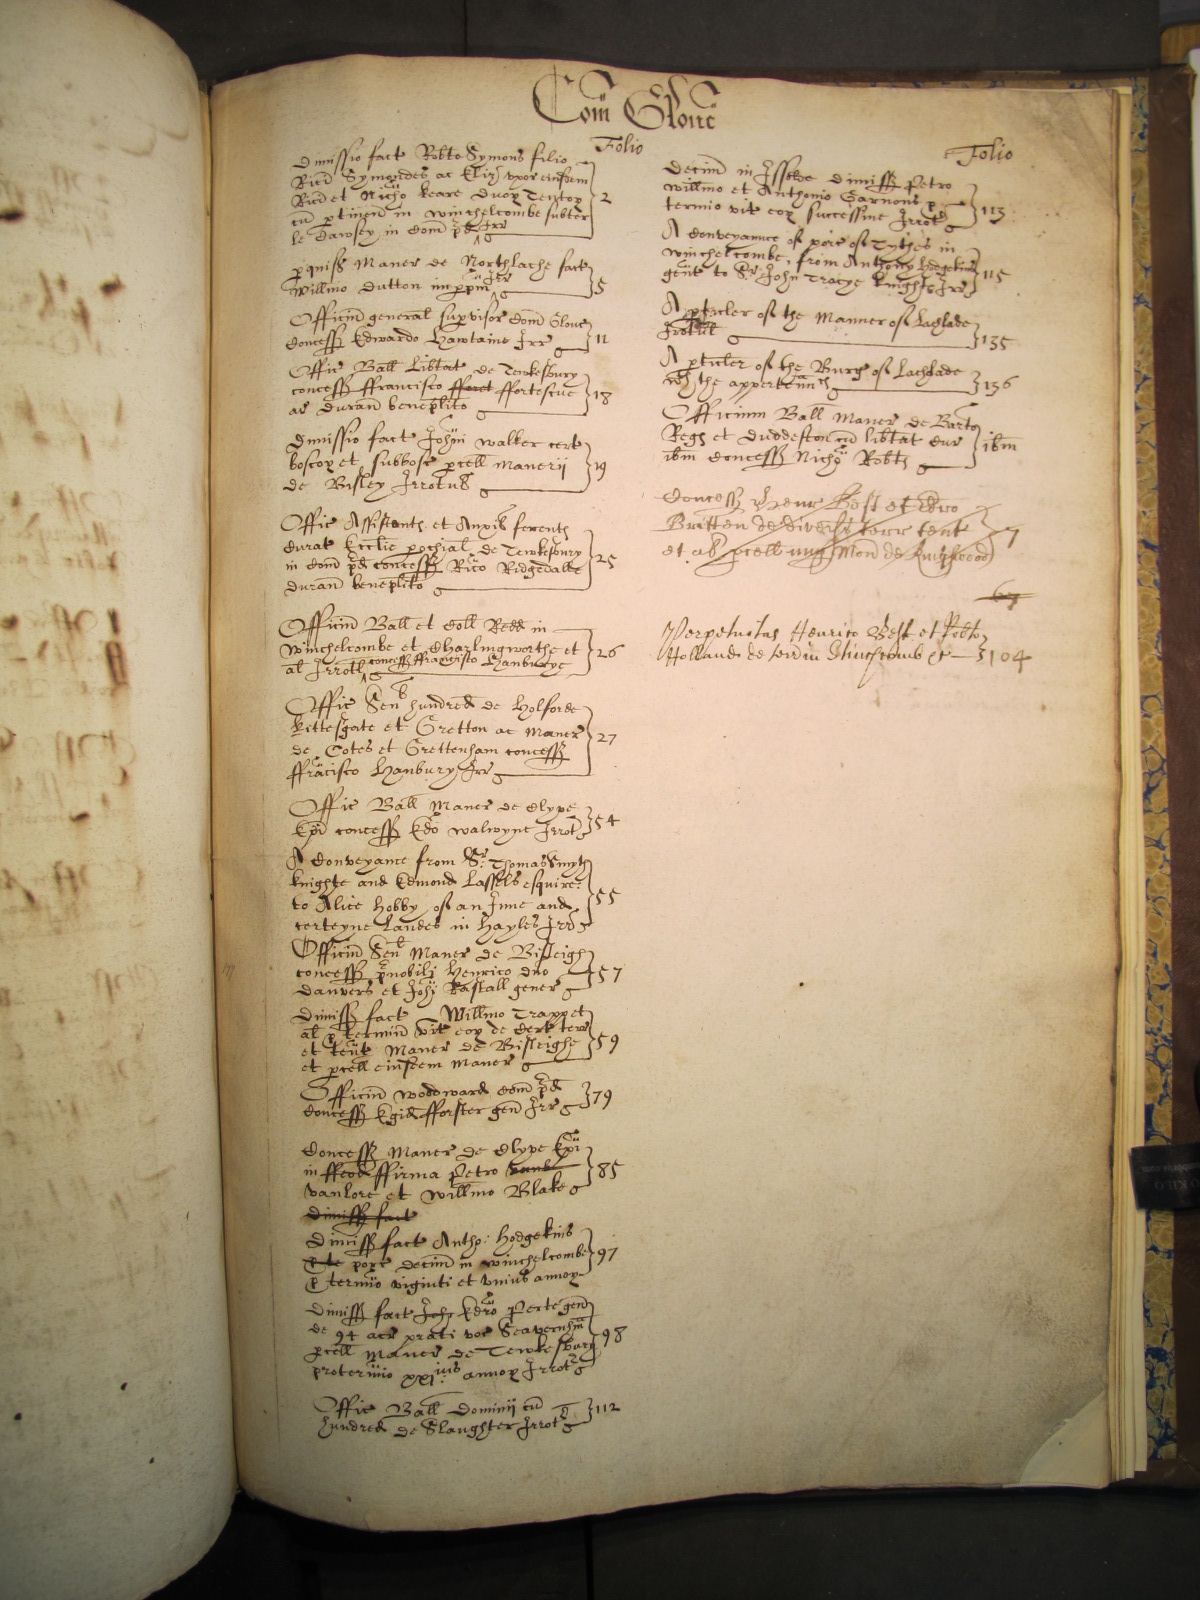 Com Glouc
Folio
Dimissio fact Robto Symons filio
Rici Symondes ac Eliz vxor eiusdem
Rici et Nicho Keare duor Tentor
cu ptinen in Winchelcombe subter
le Dawsey in Com pd Irr
2
Maner de Northlache fact
Willmo Dutton Irr
5
Officiu general supvisor Com Glouc
concess Edwardo Hawtaine Irr
11
Offic Ball Libtat de Tewkesbury
concess ffrancisco ffortescue
ar duran beneplito
18
Dimissio fact Johni Walker cert
boscor et subbosc pcell Manerii
de Bisley Irrotus
19
Offic Assistanth et Auxil
Curat Ecclie pochial de Tewkesbury
in Com pd concess Rico Ridgedalle
duran beneplito
25
Officiu Ball et Coll Redd in
Winchelcombe et Charlingworthe et
al Irrot concess ffrancisco Hanburye
26
Offic Sen hundred de Holforde
Kittesgate et Gretton ac Maner
de Cotes et Grettenham concess
ffrancisco Hanbury Irr
27
Offic Ball Maner de Clype
Epi concess Edo Walwyne Irrot
54
A Conveyance from Sr Thomas Smyth
knighte and Edmond Lassels esquire
to Alice Hobby of an Inne and
certeyne Landes in Hayles Irr
55
Officiu Sen Maner de Bisleigh
concess pnobili Henrico dno
Danvers et Johi Rastall gener
57
Dimiss fact Willmo Trappet
al p termin vit eor de Cert terr
et tent Maner de Bisleighe
et pcell eiusdem Maner
59
Officiu Woodward Com pd
Concess Egid fforster gen Irr
79
Concess Maner de Clype Epi
in ffeod ffirma Petro
Vanlore et Willmo Blake
85
Dimiss fact
Dimiss fact Antho: Hodgekins
porc decim in Winchelcombe
p termio viginti et vnius annor
97
Dimiss fact Joh Edro Perte gen
de 94 acr prati voc Seavernhm
pcell Maner de Tewkesbury
pro termio xxi ius annor Irrot
98
Offic Ball Dominij cu
hundred de Slaughter Irrot
112
Folio
Decim in dimiss Petro
Willmo et Anthonio Garnons p
termio vit eor successiue Irrot
113
A Conveyannce of porc of Tythes in
Winchelcombe from Anthony Hodgekins
gent to Sr John Tracye knighte Irr
115
A pticler of the Manner of Lachlade
Irrotul
135
A pticler of the Burg of Lachlade
wth the appertennc
136
Officium Ball Maner de Barto
Regs et Duddeston cu libtat Cur
ibm Concess Nicho Robts
ibm
Concess Henr Best et Edro
Britten de divers terr tent
et al pcell
7
67
Perpetuitas Henrico Best et Robto
Holland de
104